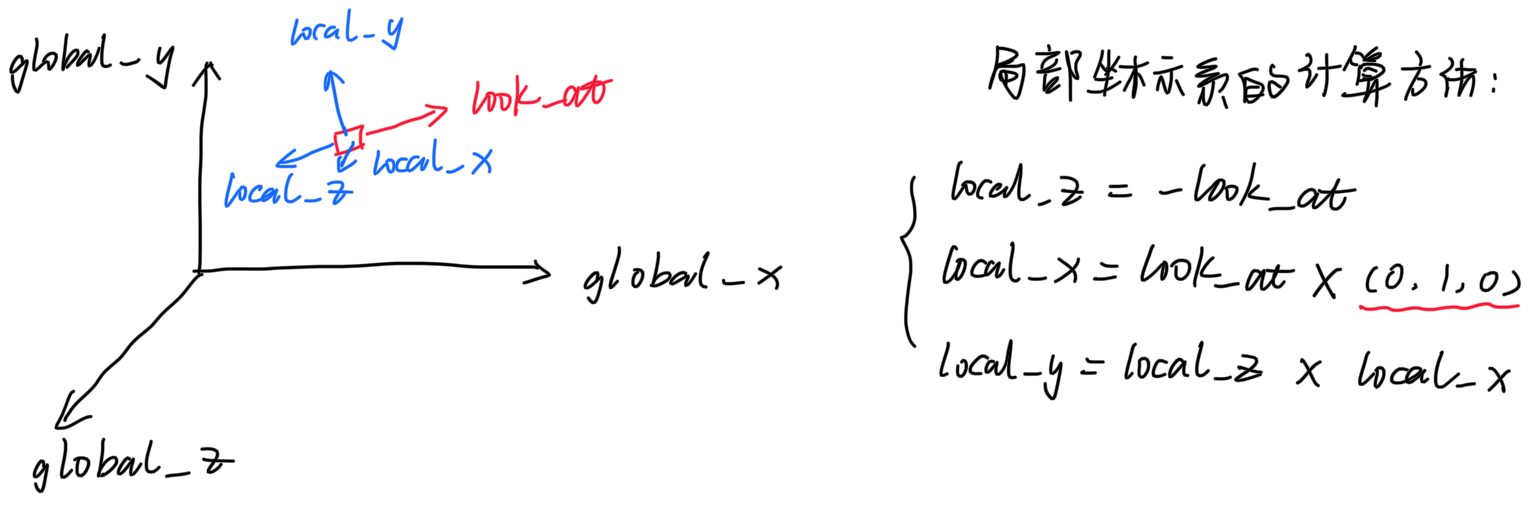 local_y
global_y
look_at
local_x
local_z
global_x
global_z
局部坐标系的计算方法:
local_z = -look_at
local_x = look_at × (0, 1, 0)
local_y = local_z × local_x